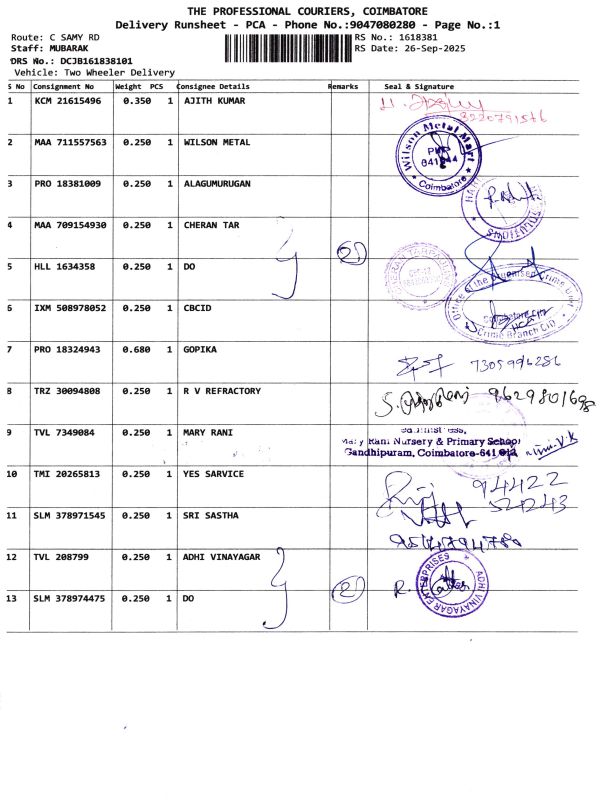 THE PROFESSIONAL COURIERS, COIMBATORE
Delivery Runsheet - PCA - Phone No.:9047080280 - Page No.:1
Route: C SAMY RD RS No.: 1618381
Staff: MUBARAK RS Date: 26-Sep-2025
DRS No.: DCJB161838101
Vehicle: Two Wheeler Delivery
S No Consignment No Weight PCS Consignee Details Remarks Seal & Signature
1 KCM 21615496 0.350 1 AJITH KUMAR
2 MAA 711557563 0.250 1 WILSON METAL Wilson Metal Mart Coimbatore
3 PRO 18381009 0.250 1 ALAGUMURUGAN
4 MAA 709154930 0.250 1 CHERAN TAR 2
5 HLL 1634358 0.250 1 DO
6 IXM 508978052 0.250 1 CBCID Crime Branch CID
7 PRO 18324943 0.680 1 GOPIKA
8 TRZ 30094808 0.250 1 R V REFRACTORY 9629801698
9 TVL 7349084 0.250 1 MARY RANI
Mary Rani Nursery & Primary School
Gandhipuram, Coimbatore-641 012
10 TMI 20265813 0.250 1 YES SARVICE 94422
52243
11 SLM 378971545 0.250 1 SRI SASTHA
12 TVL 208799 0.250 1 ADHI VINAYAGAR ADHI VINAYAGAR ENTERPRISES
13 SLM 378974475 0.250 1 DO 2